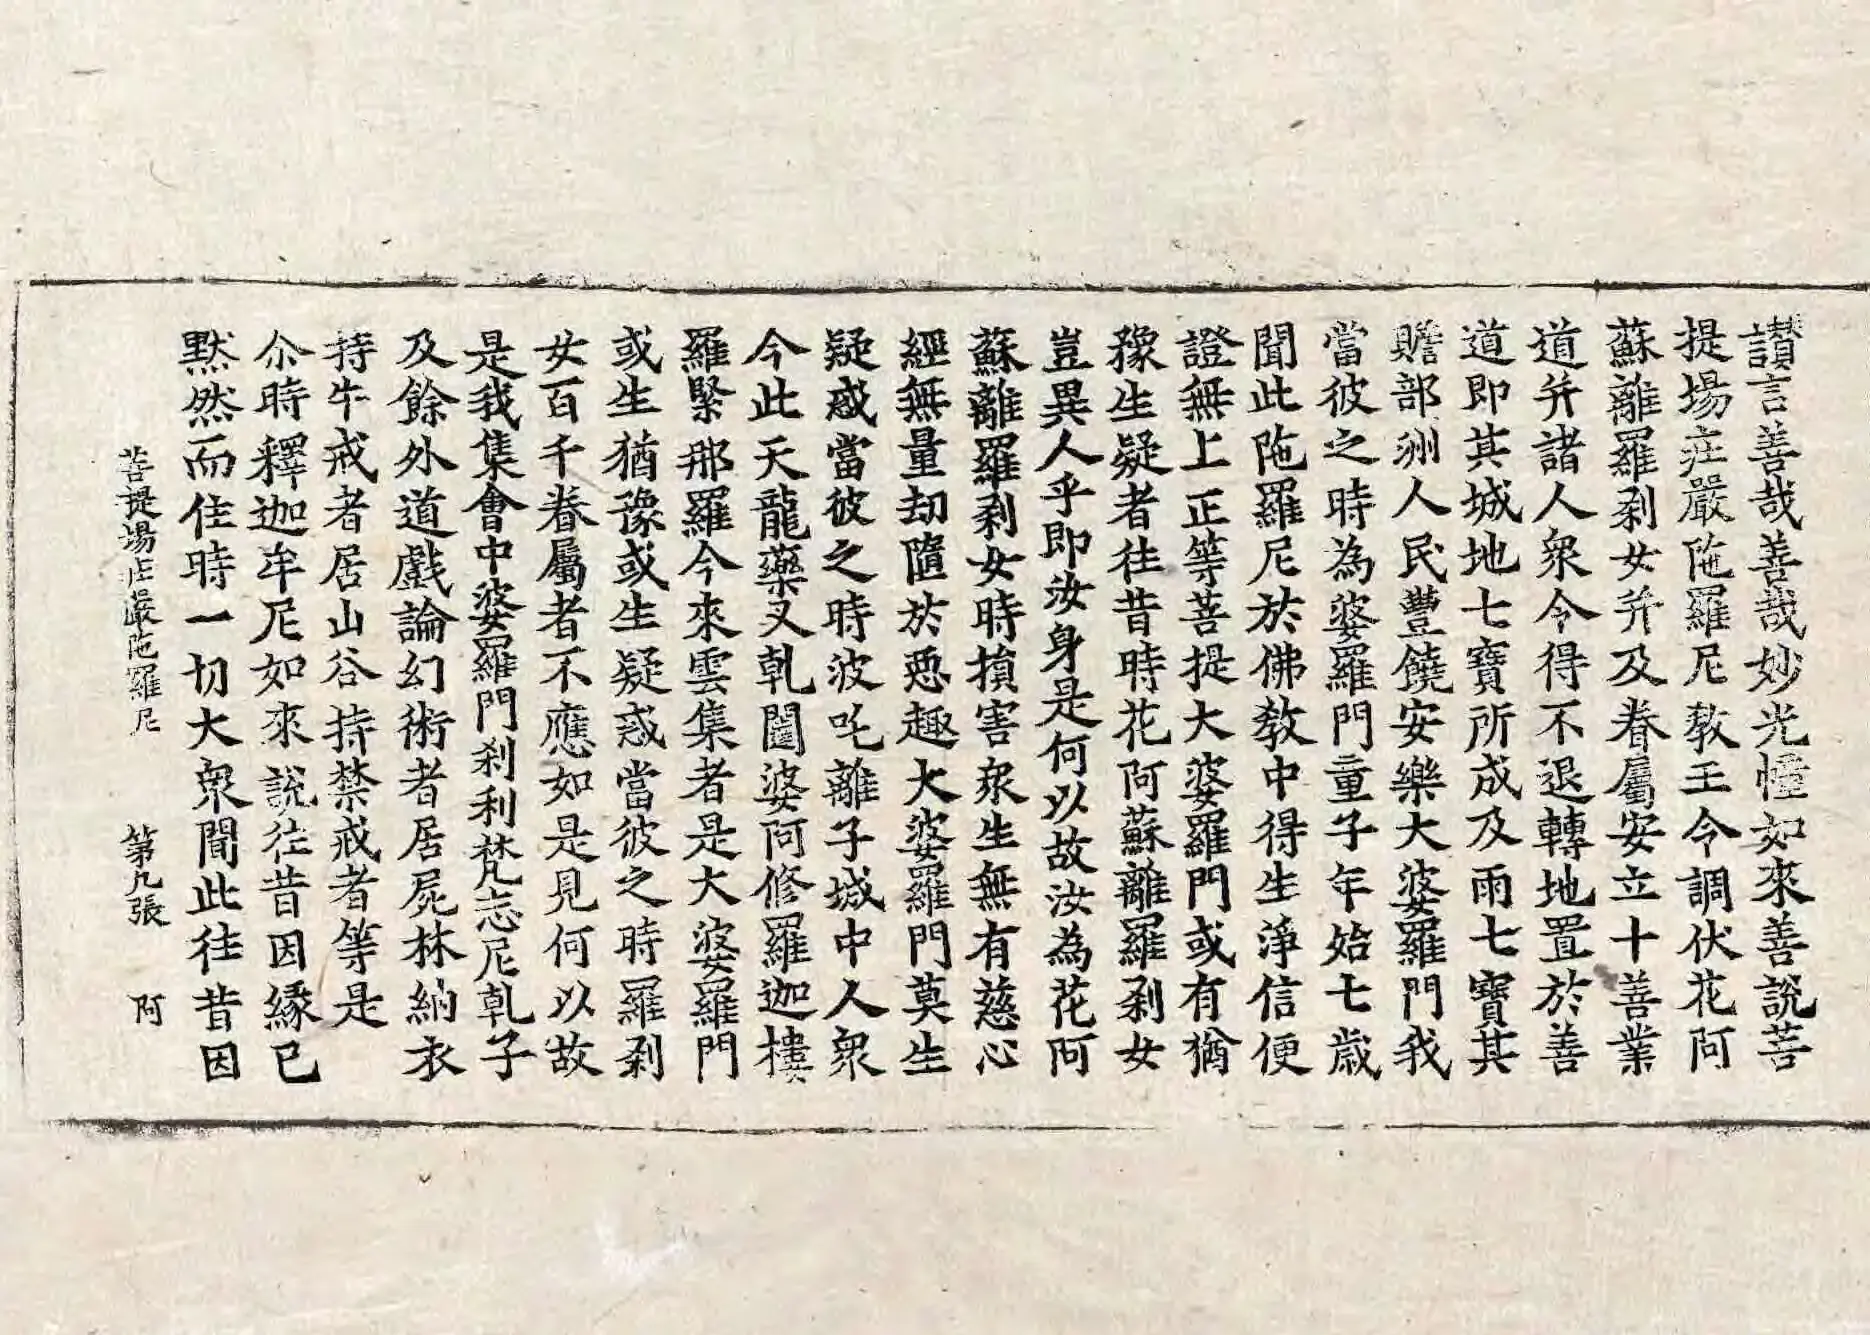 讃言善哉善哉妙光幢如來善說菩
提場庄嚴陁羅尼教王令調伏花阿
蘇離羅刹女并及眷屬安立十善業
道并諸人衆令得不退轉地置於善
道即其城地七寶所成及雨七寶其
贍部洲人民豐饒安樂大婆羅門我
當彼之時為婆羅門童子年始七歲
聞此陁羅尼於佛教中得生淨信便
證無上正等菩提大婆羅門或有猶
豫生疑者往昔時花阿蘇離羅刹女
豈異人乎即汝身是何以故汝為花阿
蘇離羅刹女時損害衆生無有慈心
經無量劫隨於惡趣大婆羅門莫生
疑惑當彼之時波吒離子城中人衆
今此天龍藥叉乹闥婆阿修羅迦樓
羅緊那羅今來雲集者是大婆羅門
或生猶豫或生疑惑當彼之時羅刹
女百千眷屬者不應如是見何以故
是我集會中婆羅門刹利梵志尼乹子
及餘外道戲論幻術者居屍林納衣
持牛戒者居山谷持禁戒者等是
尒時釋迦牟尼如來說往昔因緣已
默然而住時一切大衆聞此往昔因
菩提場庄嚴陁羅尼　第九張　阿